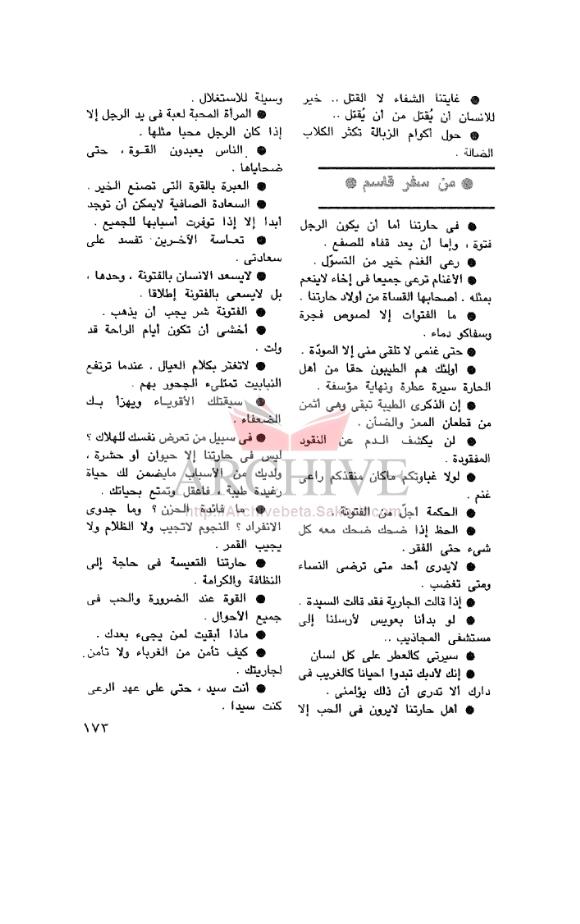 ● غايتنا الشفاء لا القتل .. خير
للانسان أن يُقتل من أن يُقتل ..
● حول أكوام الزبالة تكثر الكلاب
الضالة .
● من سفر قاسم ●
● فى حارتنا أما أن يكون الرجل
فتوة ، وإما أن يعد قفاه للصفع .
● رعى الغنم خير من التسوّل .
● الأغنام ترعى جميعا فى إخاء لاينعم
بمثله . أصحابها القساة من أولاد حارتنا .
● ما الفتوات إلا لصوص فجرة
وسفاكو دماء .
● حتى غنمى لا تلقى منى إلا المودّة .
● أولئك هم الطيبون حقا من أهل
الحارة سيرة عطرة ونهاية مؤسفة .
● إن الذكرى الطيبة تبقى وهى أثمن
من قطعان المعز والضأن .
● لن يكشف الدم عن النقود
المفقودة .
● لولا غباوتكم ماكان منقذكم راعى
غنم .
● الحكمة أجلّ من الفتونة .
● الحظ إذا ضحك ضحك معه كل
شىء حتى الفقر .
● لايدرى أحد متى ترضى النساء
ومتى تغضب .
● إذا قالت الجارية فقد قالت السيدة .
● لو بدأنا بعويس لأرسلنا إلى
مستشفى المجاذيب ..
● سيرتي كالعطر على كل لسان
● إنك لأدبك تبدوا احيانا كالغريب فى
دارك ألا تدرى أن ذلك يؤلمنى .
● أهل حارتنا لايرون فى الحب إلا
وسيلة للاستغلال .
● المرأة المحبة لعبة فى يد الرجل إلا
إذا كان الرجل محبا مثلها .
● الناس يعبدون القوة ، حتى
ضحاياها .
● العبرة بالقوة التى تصنع الخير .
● السعادة الصافية لايمكن أن توجد
أبدا إلا إذا توفرت أسبابها للجميع .
● تعاسة الآخرين تفسد على
سعادتى .
● لايسعد الانسان بالفتونة ، وحدها ،
بل لايسعى بالفتونة إطلاقا .
● الفتونة شر يجب أن يذهب .
● أخشى أن تكون أيام الراحة قد
ولت .
● لاتغتر بكلام العيال . عندما ترتفع
النبابيت تمتلىء الجحور بهم .
● سبقتلك الأقوياء ويهزأ بك
الضعفاء .
● فى سبيل من تعرض نفسك للهلاك ؟
ليس فى حارتنا إلا حيوان أو حشرة ،
ولديك من الأسباب مايضمن لك حياة
رغيدة طيبة ، فاعقل وتمتع بحياتك .
● ما فائدة الحزن ؟ وما جدوى
الانفراد ؟ النجوم لاتجيب ولا الظلام ولا
يجيب القمر .
● حارتنا التعيسة فى حاجة إلى
النظافة والكرامة .
● القوة عند الضرورة والحب فى
جميع الأحوال .
● ماذا أبقيت لمن يجىء بعدك .
● كيف تأمن من الغرباء ولا تأمن.
لجاريتك .
● أنت سيد ، حتى على عهد الرعى
كنت سيدا .
١٧٣
ARCHIVE
http://Archivebeta.Sakhrit.com